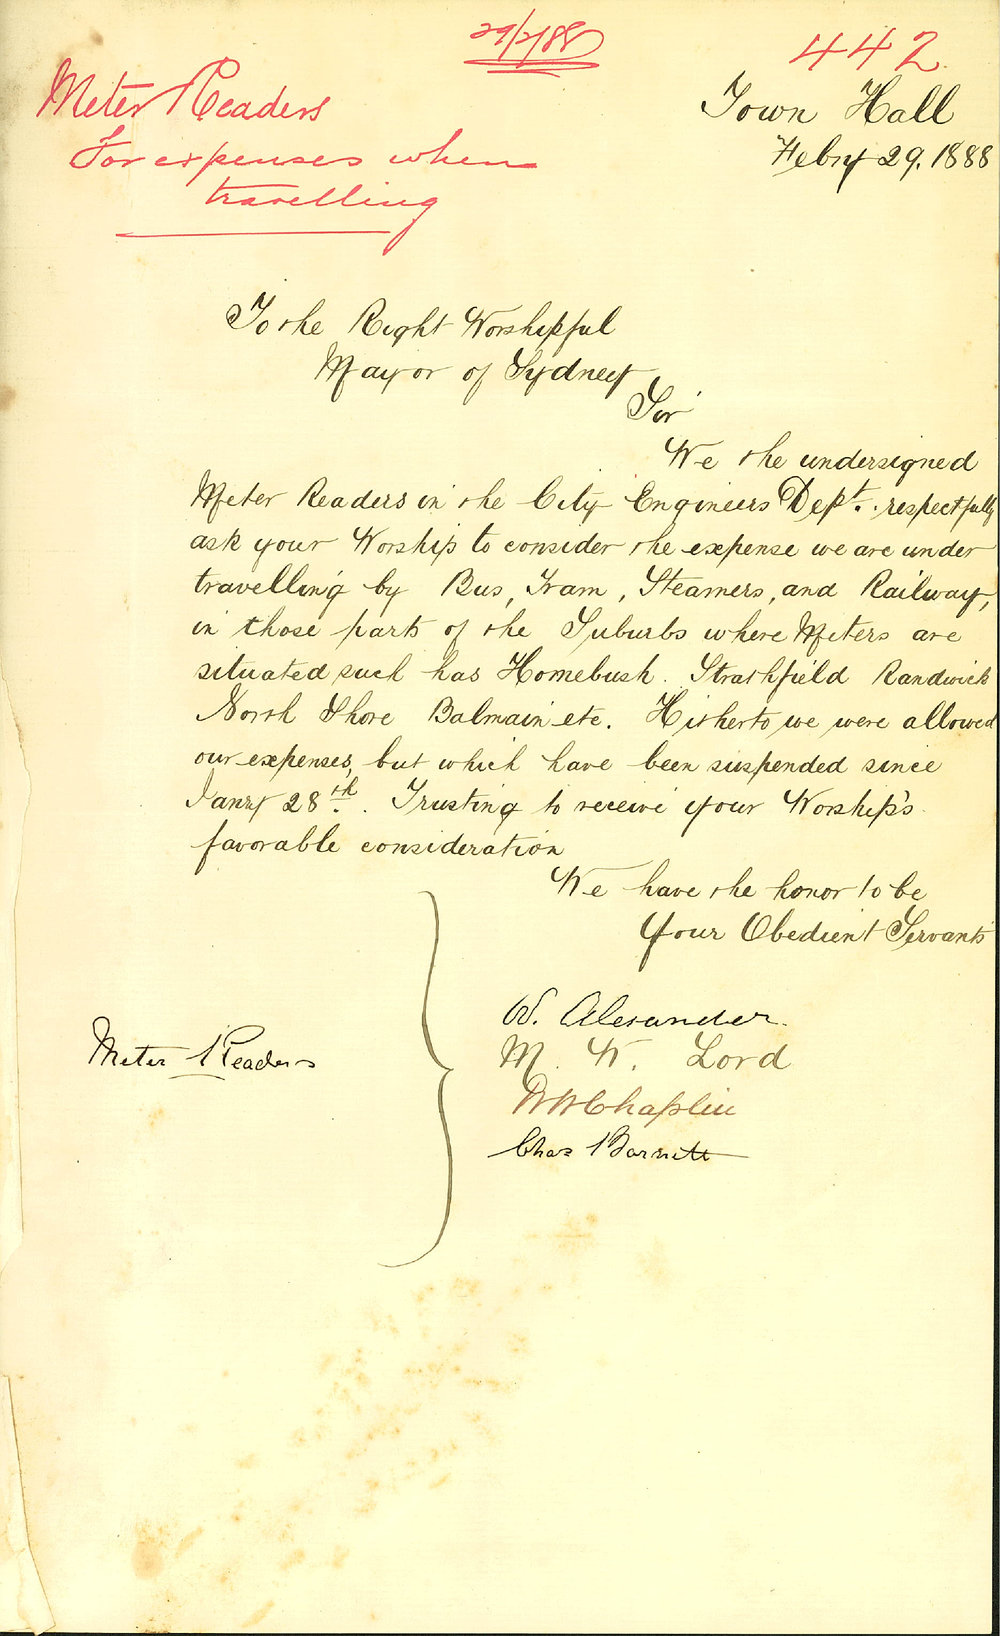 29/2/88
442
Meter Readers
For expenses when
travelling
Town Hall
Febry 29. 1888
To the Right Worshipful
Mayor of Sydney
Sir
We the undersigned
Meter Readers in the City Engineers Dept. respectfully
ask your Worship to consider the expense we are under
travelling by Bus, Tram, Steamers, and Railway,
in those parts of the Suburbs where Meters are
situated such has Homebush. Strathfield Randwick
North Shore Balmain etc. Hitherto we were allowed
our expenses, but which have been suspended since
Janry 28th. Trusting to receive your Worship's
favorable consideration
We have the honor to be
Your Obedient Servants
W. Alexander.
Meter Readers
M. W. Lord
W W Chaplin
Chas Barnett